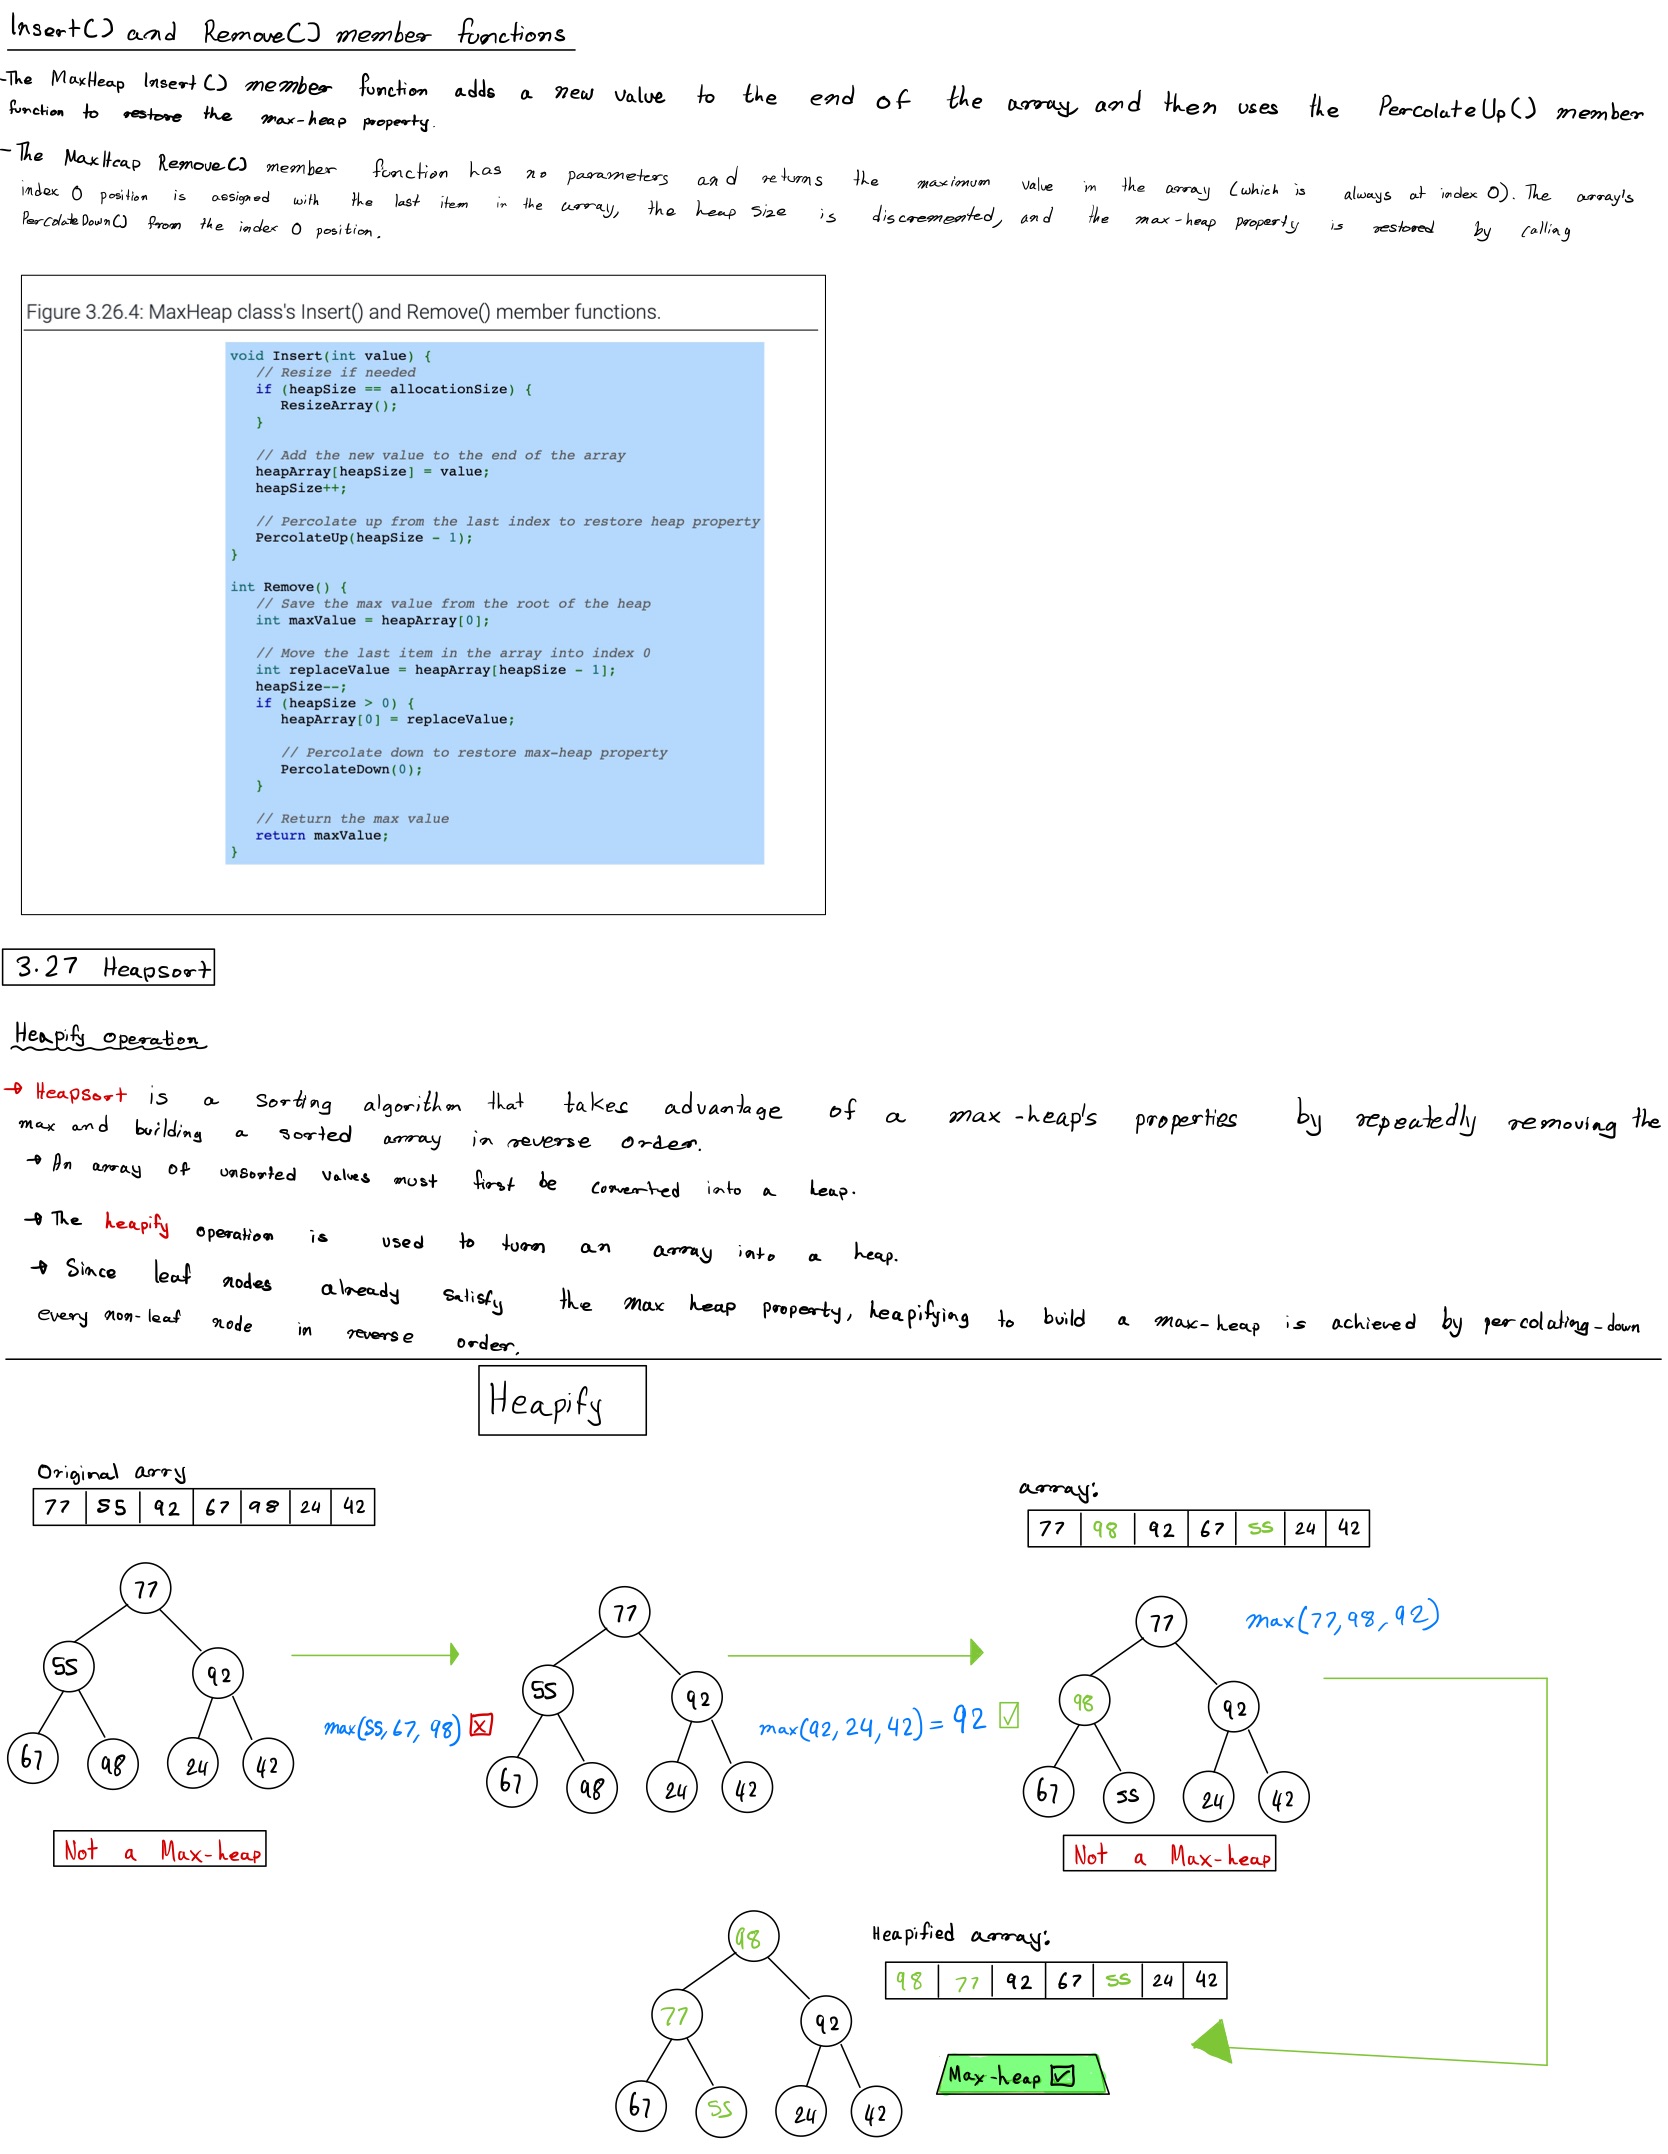 Insert() and Remove() member functions
-The MaxHeap Insert() member function adds a new value to the end of the array and then uses the PercolateUp() member
function to restore the max-heap property.
- The MaxHeap Remove() member function has no parameters and returns the maximum value in the array (which is always at index 0). The array's
index 0 position is assigned with the last item in the array, the heap size is discremented, and the max-heap property is restored by calling
PercolateDown() from the index 0 position.
Figure 3.26.4: MaxHeap class's Insert() and Remove() member functions.
void Insert(int value) {
// Resize if needed
if (heapSize == allocationSize) {
ResizeArray();
}
// Add the new value to the end of the array
heapArray[heapSize] = value;
heapSize++;
// Percolate up from the last index to restore heap property
PercolateUp(heapSize - 1);
}
int Remove() {
// Save the max value from the root of the heap
int maxValue = heapArray[0];
// Move the last item in the array into index 0
int replaceValue = heapArray[heapSize - 1];
heapSize--;
if (heapSize > 0) {
heapArray[0] = replaceValue;
// Percolate down to restore max-heap property
PercolateDown(0);
}
// Return the max value
return maxValue;
}
3.27 Heapsort
Heapify operation
→ Heapsort is a sorting algorithm that takes advantage of a max-heap's properties by repeatedly removing the
max and building a sorted array in reverse order.
→ An array of unsorted values must first be converted into a heap.
→ The heapify operation is used to turn an array into a heap.
→ Since leaf nodes already satisfy the max heap property, heapifying to build a max-heap is achieved by percolating-down
every non-leaf node in reverse order.
Heapify
Original arry
77 55 92 67 98 24 42
array:
77 98 92 67 55 24 42
77
55 92
67 98 24 42
Not a Max-heap
max(55, 67, 98)
77
55 92
67 98 24 42
max(92, 24, 42) = 92
77
98 92
67 55 24 42
max(77, 98, 92)
Not a Max-heap
98
77 92
67 55 24 42
Heapified array:
98 77 92 67 55 24 42
Max-heap